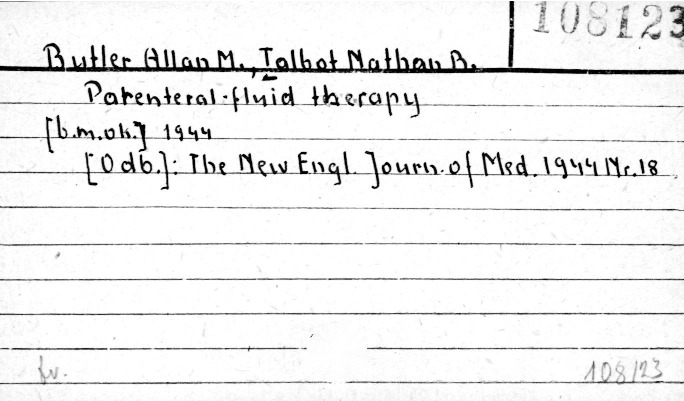 108123
Butler Allan M., Talbot Nathan B.
Parenteral-fluid therapy
[b.m.ok.] 1944
[Odb.]: The New Engl. Journ. of Med. 1944 Nr. 18
108123